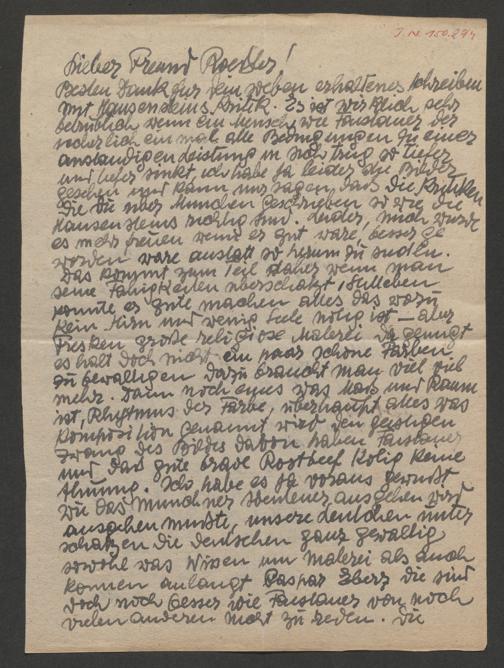 J.N. 150.294
Lieber Freund Roessler!
Besten Dank für dein soeben erhaltenes Schreiben
mit Hausensteins Kritik. Es ist wirklich sehr
betrüblich wenn ein Mensch wie Faistauer der
sicherlich einmal alle Bedingungen zu einer
anständigen Leistung in sich trug so tiefer
und tiefer sinkt, ich habe ja leider die Bilder
gesehen und kann nur sagen, dass die Kritiken
die du mir München geschrieben so wie die
Hausensteins richtig sind. Leider, mich würde
es mehr freuen wenn es gut wäre, besser ge
worden wäre anstatt so herum zu sudeln.
Das kommt zum Teil daher wenn man
seine Fähigkeiten überschätzt, Stilleben
konnte er gute machen alles das wozu
kein Hirn und wenig Seele nötig ist — aber
Fresken große religiöse Malerei da genügt
es halt doch nicht ein paar schöne Farben
zu bewältigen dazu braucht man viel viel
mehr. Dann noch eines was Mass und Raum
ist, Rhythmus der Farbe, überhaupt alles was
Komposition genannt wird den geistigen
Zwang des Bildes davon haben Faistauer
und das gute brave Rostbeef Kolig keine
Ahnung. Ich habe es ja voraus gewusst
wie das Münchner Abenteuer ausgehen wird
ausgehen musste, unsere Leutchen unter
schätzen die Deutschen ganz gewaltig
sowohl was Wissen um Malerei als auch
können anlangt Caspar Eberz die sind
doch noch besser wie Faistauer von noch
vielen anderen nicht zu reden. Die